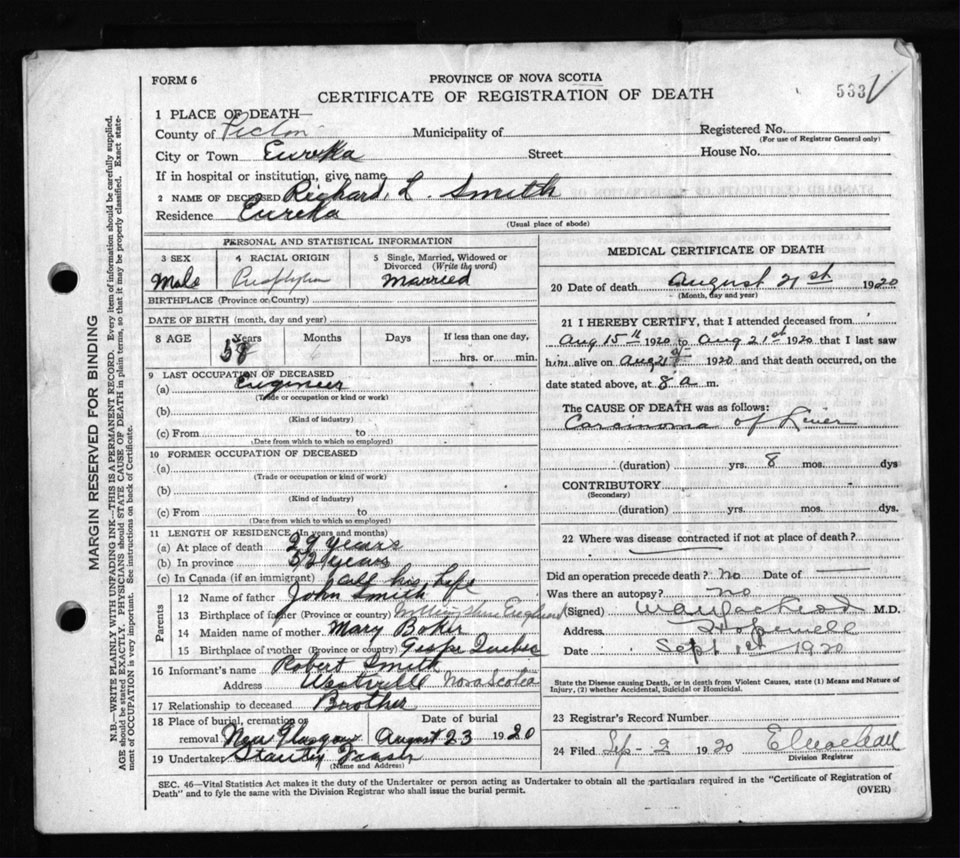 FORM 6
PROVINCE OF NOVA SCOTIA
CERTIFICATE OF REGISTRATION OF DEATH
533
1 PLACE OF DEATH—
County of Pictou Municipality of Registered No.
(For use of Registrar General only)
City or Town Eureka Street House No.
If in hospital or institution, give name
2 NAME OF DECEASED Richard L. Smith
Residence Eureka
(Usual place of abode)
PERSONAL AND STATISTICAL INFORMATION
3 SEX 4 RACIAL ORIGIN 5 Single, Married, Widowed or Divorced (Write the word)
Male Married
BIRTHPLACE (Province or Country)
DATE OF BIRTH (month, day and year)
8 AGE Years Months Days If less than one day,
58 hrs. or min.
9 LAST OCCUPATION OF DECEASED
(a) Engineer
(Trade or occupation or kind or work)
(b)
(Kind of industry)
(c) From to
(Date from which to which so employed)
10 FORMER OCCUPATION OF DECEASED
(a)
(Trade or occupation or kind of work)
(b)
(Kind of industry)
(c) From to
(Date from which to which so employed)
11 LENGTH OF RESIDENCE (In years and months)
(a) At place of death 29 years
(b) In province 52 years
(c) In Canada (if an immigrant) all his life
Parents
12 Name of father John Smith
13 Birthplace of father (Province or country) England
14 Maiden name of mother Mary
15 Birthplace of mother (Province or country) Gaspe Quebec
16 Informant's name Robert Smith
Address Westville Nova Scotia
17 Relationship to deceased Brother
18 Place of burial, cremation or removal New Glasgow Date of burial August 23 1920
19 Undertaker Stanley Fraser
(Name and Address)
MEDICAL CERTIFICATE OF DEATH
20 Date of death August 21st 1920
(Month, day and year)
21 I HEREBY CERTIFY, that I attended deceased from
Aug 15th 1920 to Aug 21st 1920 that I last saw
him alive on Aug 21st 1920 and that death occurred, on the
date stated above, at 8 a m.
The CAUSE OF DEATH was as follows:
Carcinoma of Liver
(duration) yrs. 8 mos. dys
CONTRIBUTORY
(Secondary)
(duration) yrs. mos. dys.
22 Where was disease contracted if not at place of death?
Did an operation precede death? No Date of
Was there an autopsy? No
(Signed) M.D.
Address Hopewell
Date Sept 1st 1920
State the Disease causing Death, or in death from Violent Causes, state (1) Means and Nature of
Injury, (2) whether Accidental, Suicidal or Homicidal.
23 Registrar's Record Number
24 Filed Sep - 2 1920
Division Registrar
SEC. 46—Vital Statistics Act makes it the duty of the Undertaker or person acting as Undertaker to obtain all the particulars required in the "Certificate of Registration of
Death" and to fyle the same with the Division Registrar who shall issue the burial permit. (OVER)
MARGIN RESERVED FOR BINDING
N.B.—WRITE PLAINLY WITH UNFADING INK—THIS IS A PERMANENT RECORD. Every item of information should be carefully supplied.
AGE should be stated EXACTLY. PHYSICIANS should STATE CAUSE OF DEATH in plain terms, so that it may be properly classified. Exact state-
ment of OCCUPATION is very important. See instructions on back of Certificate.